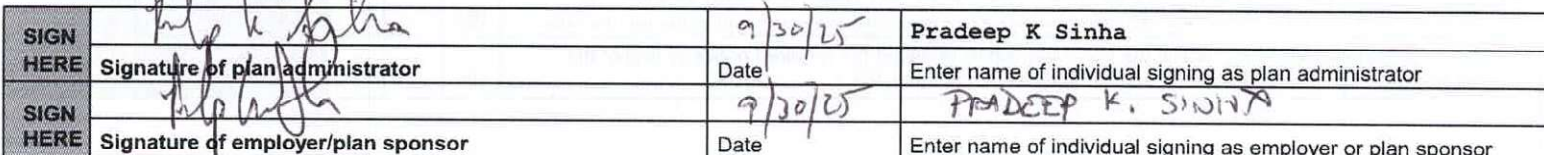 SIGN HERE 9/30/25 Pradeep K Sinha
Signature of plan administrator Date Enter name of individual signing as plan administrator
SIGN HERE 9/30/25 PRADEEP K. SINHA
Signature of employer/plan sponsor Date Enter name of individual signing as employer or plan sponsor